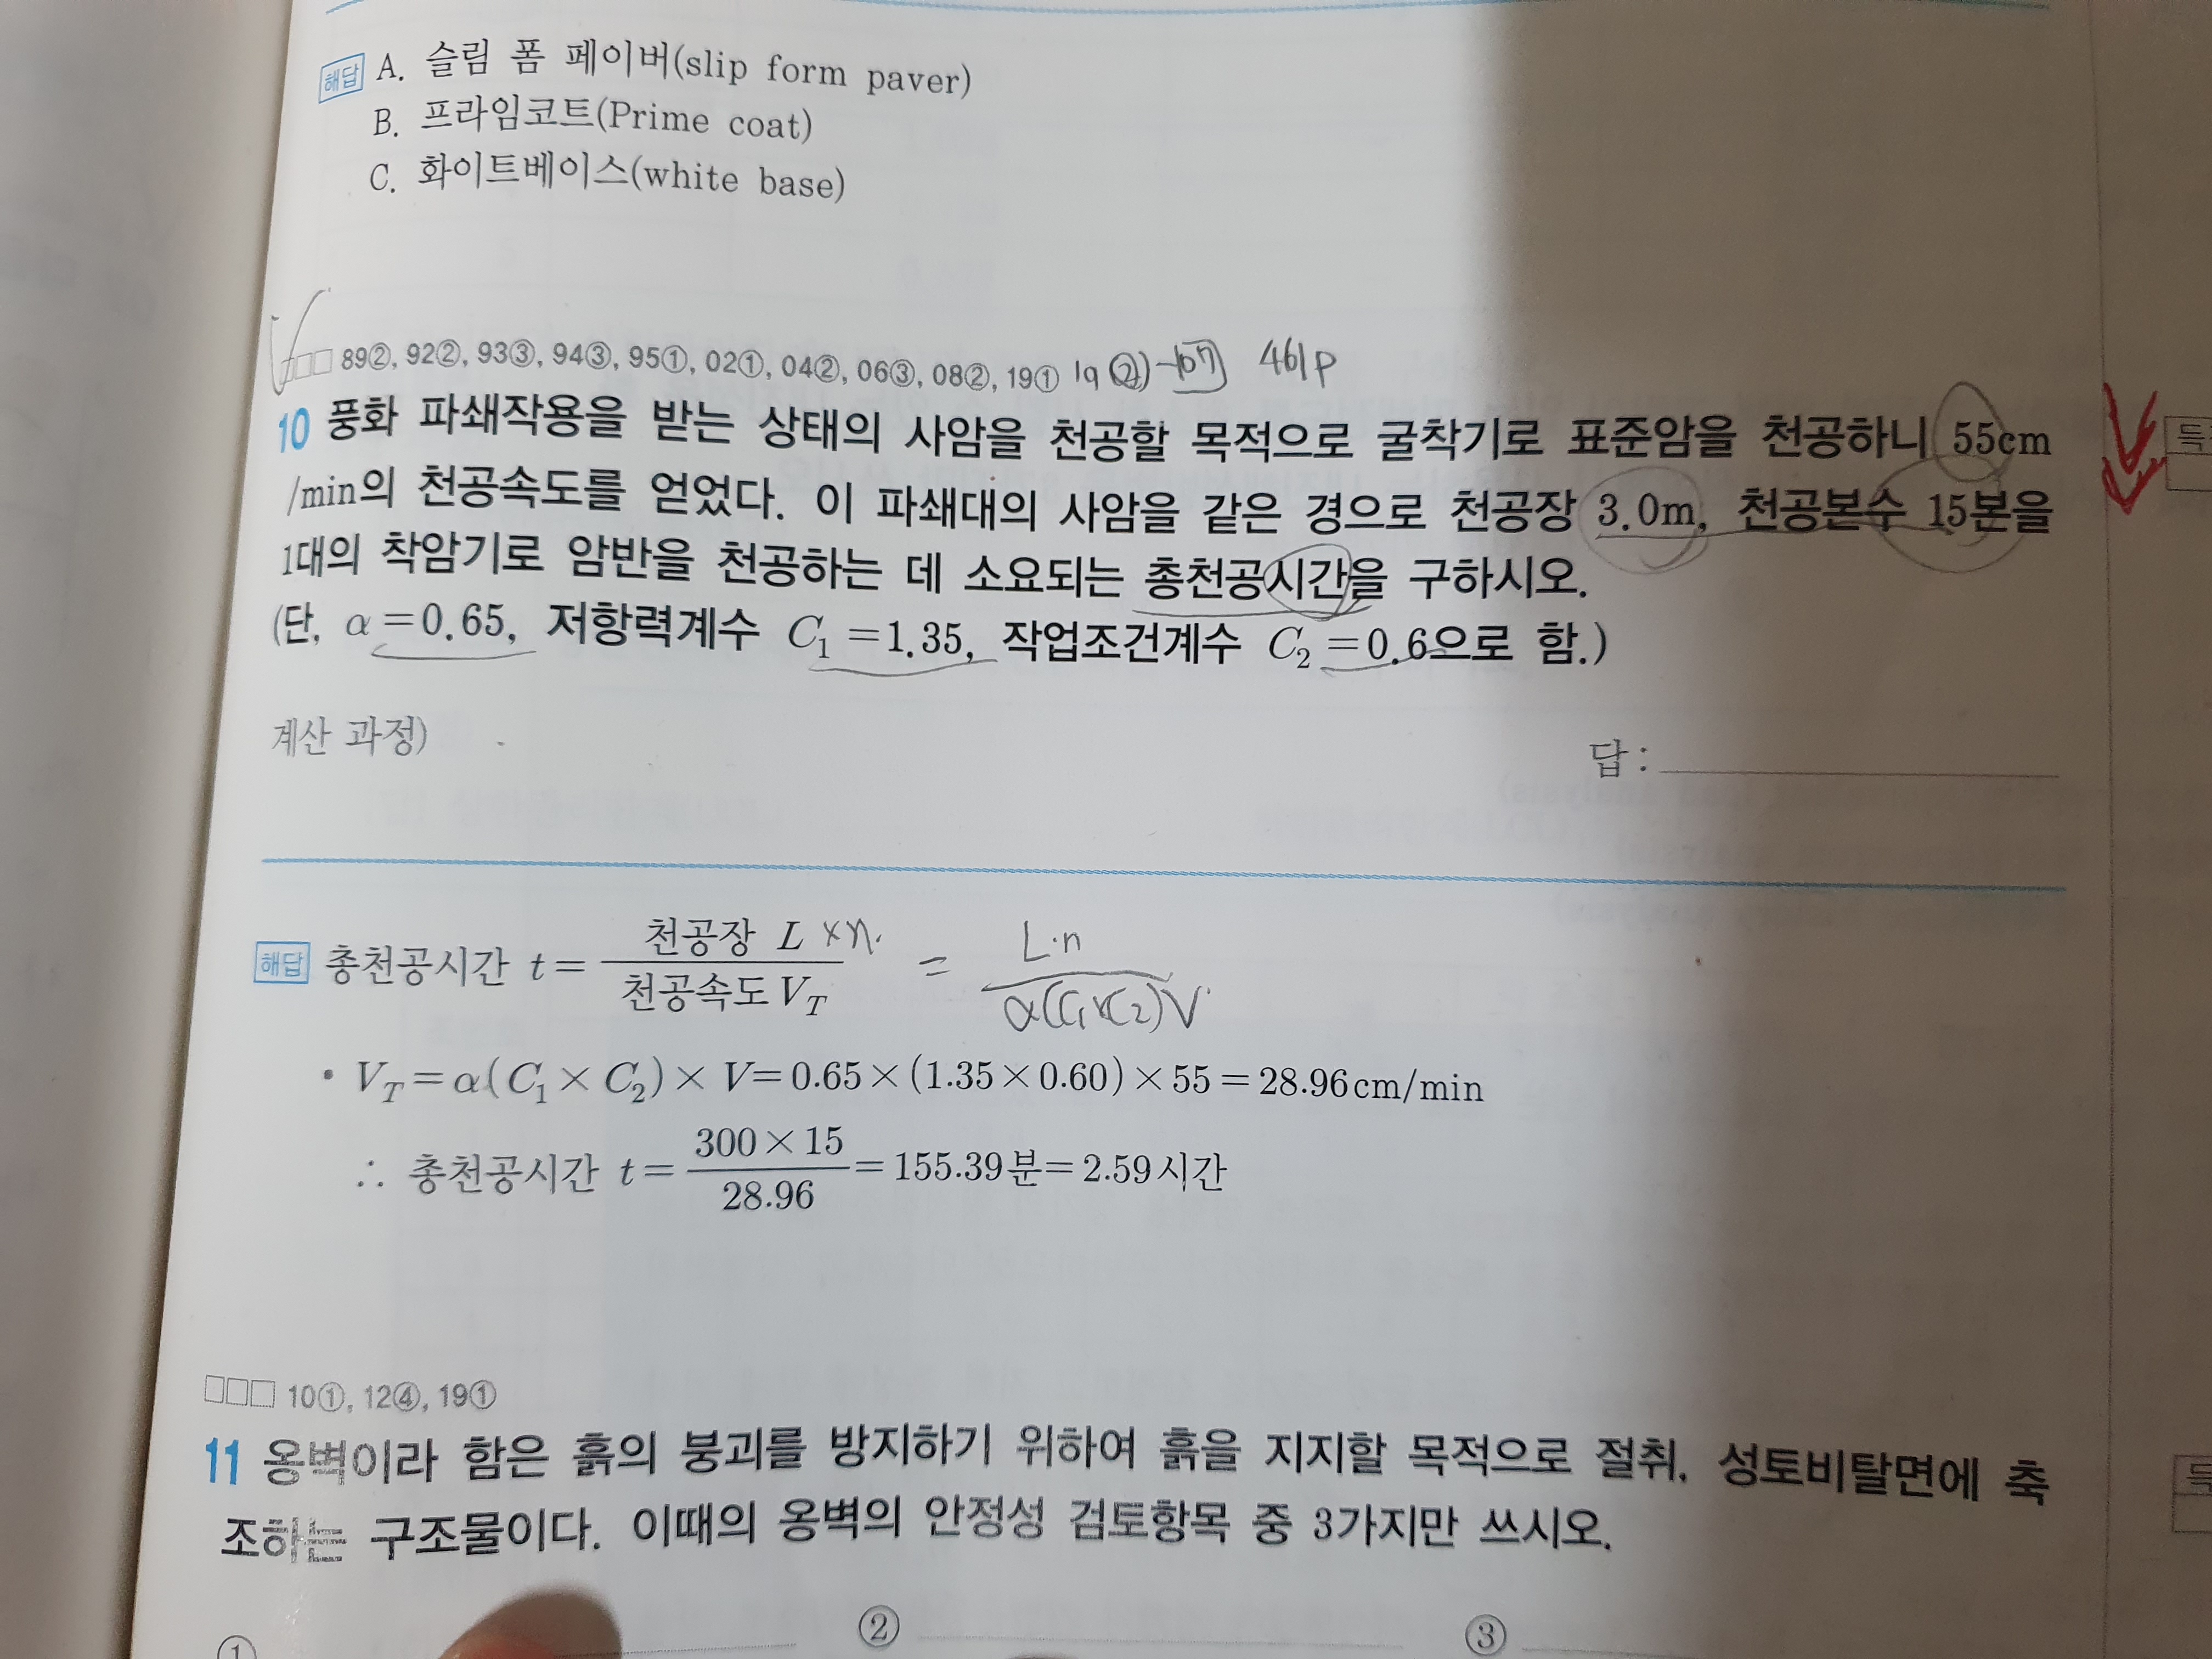 해답 A. 슬림 폼 페이버(slip form paver)
B. 프라임코트(Prime coat)
C. 화이트베이스(white base)
□□□ 89②, 92②, 93③, 94③, 95①, 02①, 04②, 06③, 08②, 19① 19②-107 461p
10 풍화 파쇄작용을 받는 상태의 사암을 천공할 목적으로 굴착기로 표준암을 천공하니 55cm
/min의 천공속도를 얻었다. 이 파쇄대의 사암을 같은 경으로 천공장 3.0m, 천공본수 15본을
1대의 착암기로 암반을 천공하는 데 소요되는 총천공시간을 구하시오.
(단, α=0.65, 저항력계수 C₁=1.35, 작업조건계수 C₂=0.6으로 함.)
계산 과정)
답:
해답 총천공시간 t = 천공장 L ×n / 천공속도 V_T = L·n / α(C₁×C₂)V
• V_T = α(C₁ × C₂) × V = 0.65×(1.35×0.60)×55 = 28.96cm/min
∴ 총천공시간 t = 300×15 / 28.96 = 155.39분 = 2.59시간
□□□ 10①, 12④, 19①
11 옹벽이라 함은 흙의 붕괴를 방지하기 위하여 흙을 지지할 목적으로 절취, 성토비탈면에 축
조하는 구조물이다. 이때의 옹벽의 안정성 검토항목 중 3가지만 쓰시오.
① ② ③